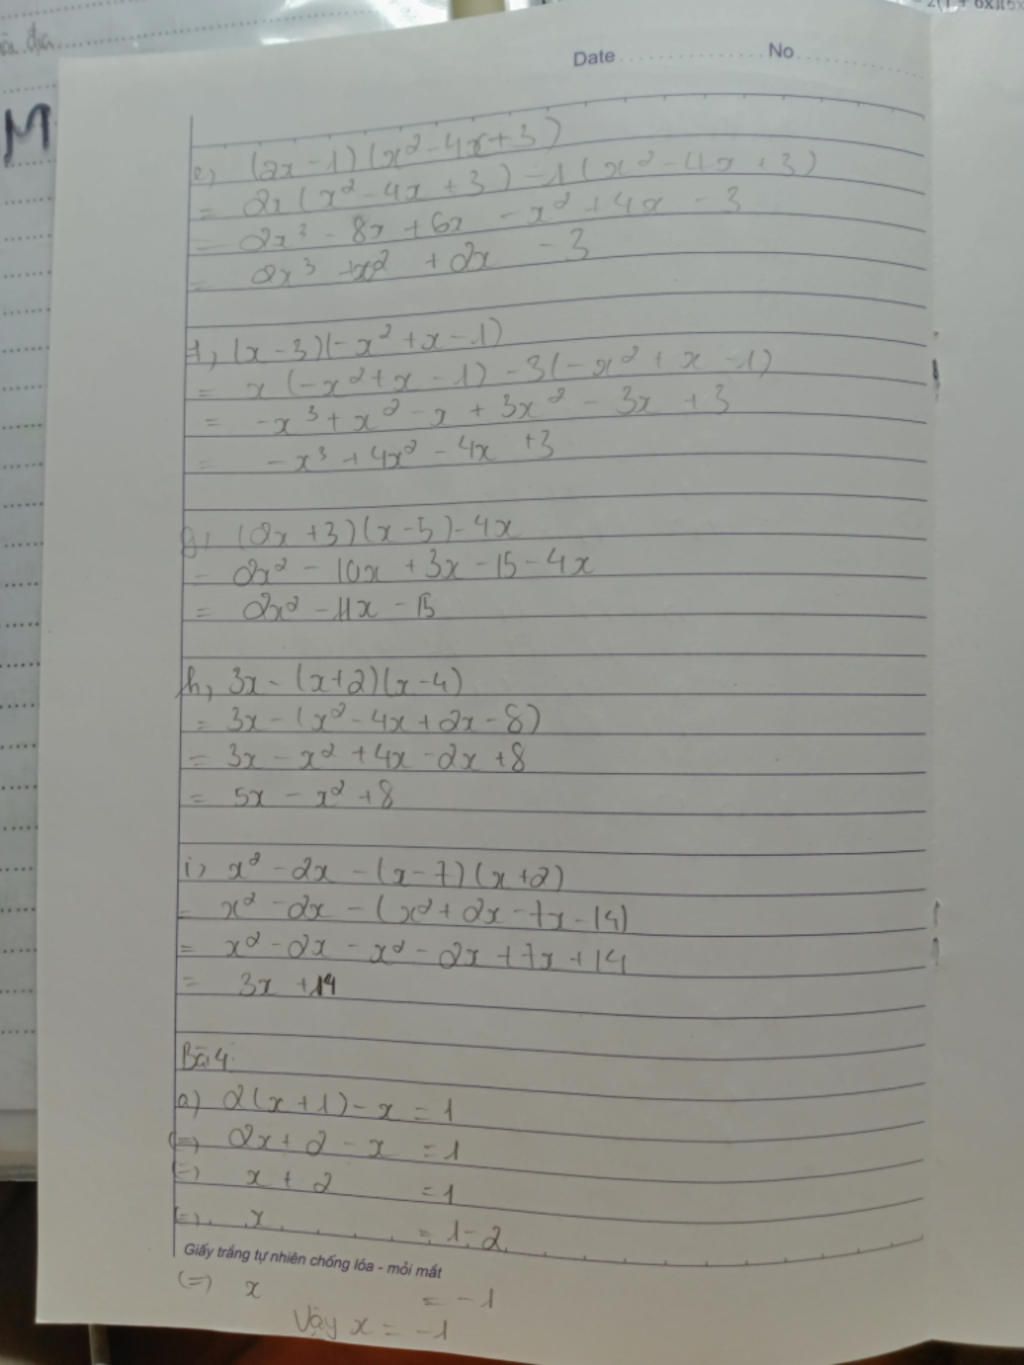 Date No
e, (2x - 1)(x² - 4x + 3)
= 2x(x² - 4x + 3) - 1(x² - 4x + 3)
= 2x³ - 8x + 6x - x² + 4x - 3
= 2x³ + x² + 2x - 3
f, (x - 3)(-x² + x - 1)
= x(-x² + x - 1) - 3(-x² + x - 1)
= -x³ + x² - x + 3x² - 3x + 3
= -x³ + 4x² - 4x + 3
g, (2x + 3)(x - 5) - 4x
= 2x² - 10x + 3x - 15 - 4x
= 2x² - 11x - 15
h, 3x - (x + 2)(x - 4)
= 3x - (x² - 4x + 2x - 8)
= 3x - x² + 4x - 2x + 8
= 5x - x² + 8
i, x² - 2x - (x - 7)(x + 2)
= x² - 2x - (x² + 2x - 7x - 14)
= x² - 2x - x² - 2x + 7x + 14
= 3x + 14
Bài 4.
a) 2(x + 1) - x = 1
(=) 2x + 2 - x = 1
(=) x + 2 = 1
(=) x = 1 - 2
Giấy trắng tự nhiên chống lóa - mỏi mắt
(=) x = -1
Vậy x = -1